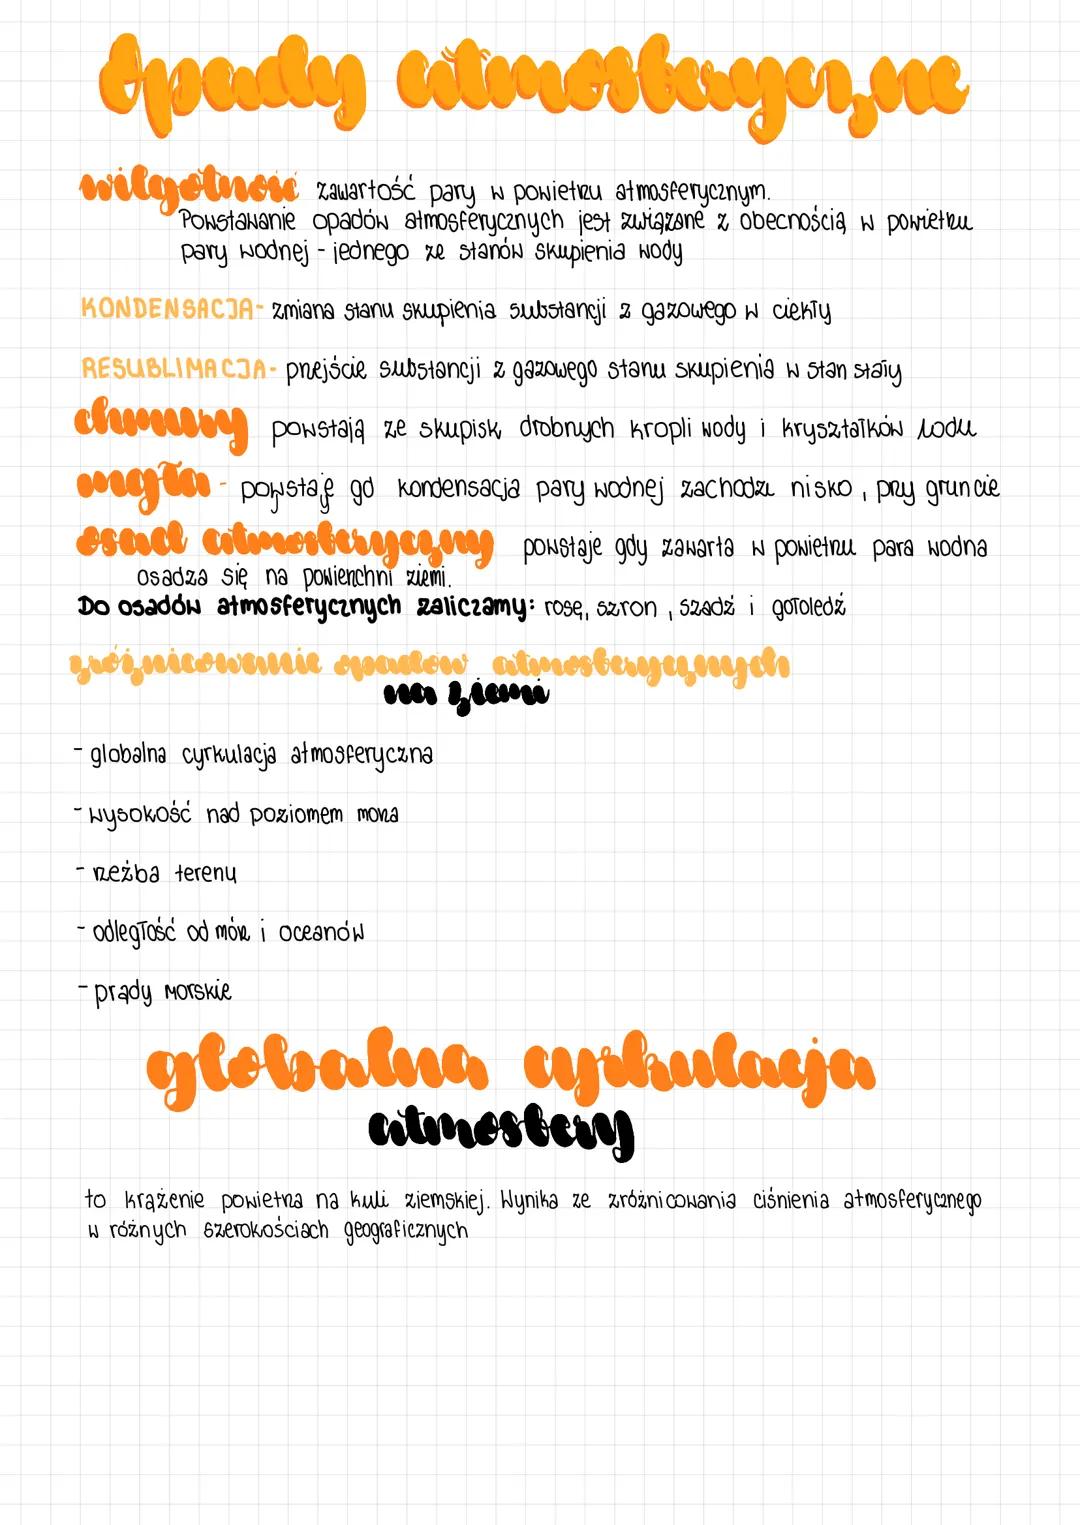 Opady atmosferyczne
wilgotność zawartość pary w powietrzu atmosferycznym.
Powstawanie opadów atmosferycznych jest związane z obecnością w powietrzu
pary wodnej - jednego ze stanów skupienia wody
KONDENSACJA- zmiana stanu skupienia substancji z gazowego w ciekły
RESUBLIMACJA- przejście substancji z gazowego stanu skupienia w stan stały
chmury powstają ze skupisk drobnych kropli wody i kryształków lodu
mgła - powstaje gd kondensacja pary wodnej zachodzi nisko, przy gruncie
osad atmosferyczny powstaje gdy zawarta w powietrzu para wodna
osadza się na powierzchni ziemi.
Do osadów atmosferycznych zaliczamy: rosę, szron, szadź i gołoledź
zróżnicowanie opadów atmosferycznych
na ziemi
- globalna cyrkulacja atmosferyczna
- wysokość nad poziomem morza
- rzeźba terenu
- odległość od mórz i oceanów
- prądy morskie
globalna cyrkulacja
atmosfery
to krążenie powietrza na kuli ziemskiej. Wynika ze zróżnicowania ciśnienia atmosferycznego
w różnych szerokościach geograficznych